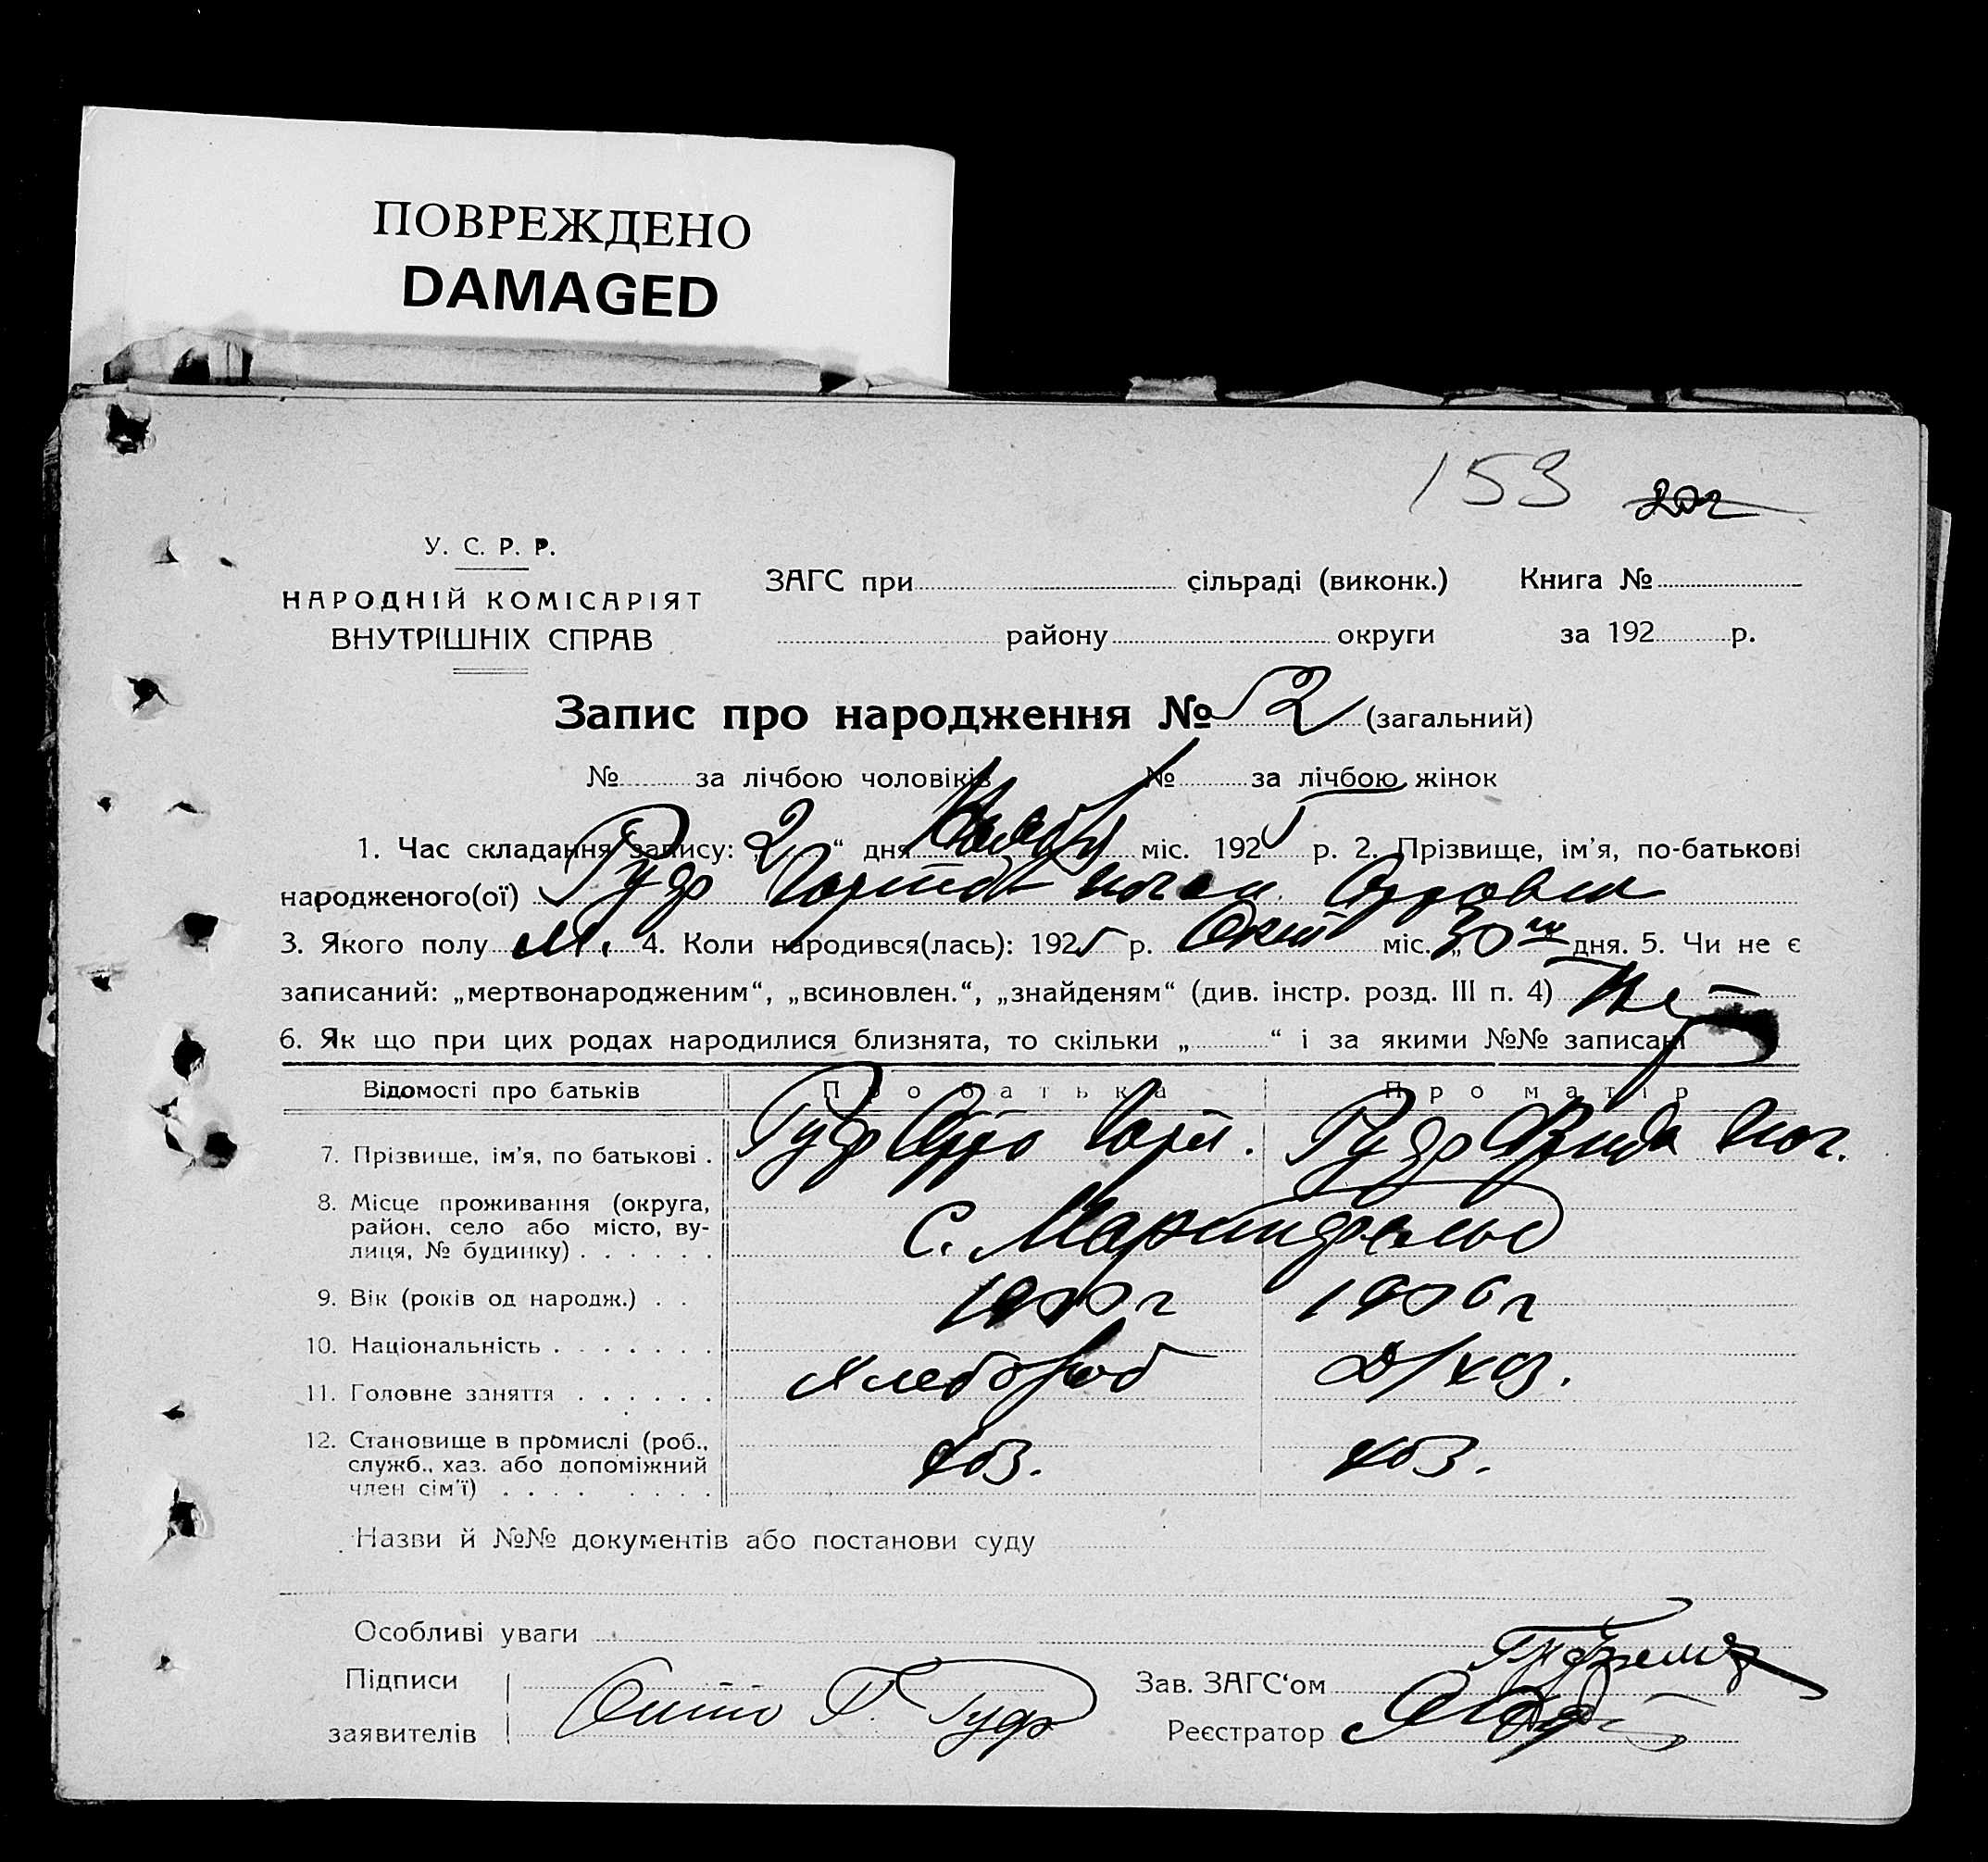 ПОВРЕЖДЕНО
DAMAGED
153
У. С. Р. Р.
НАРОДНІЙ КОМІСАРІЯТ
ВНУТРІШНІХ СПРАВ
ЗАГС при сільраді (виконк.) Книга №
району округи за 192 р.
Запис про народження № 52 (загальний)
№ за лічбою чоловіків № за лічбою жінок
1. Час складання запису: „2“ дня Ноября міс. 1925 р. 2. Прізвище, ім'я, по-батькові
народженого(ої) Гудр
3. Якого полу м. 4. Коли народився(лась): 1925 р. Окт міс. „30 дня. 5. Чи не є
записаний: „мертвонародженим“, „всиновлен.“, „знайденям“ (див. інстр. розд. III п. 4) Нет
6. Як що при цих родах народилися близнята, то скільки „ “ і за якими №№ записані
Відомості про батьків Про батька Про матір
7. Прізвище, ім'я, по батькові . Гудр Гудр
8. Місце проживання (округа,
район, село або місто, ву-
лиця, № будинку) . . . . . . С.
9. Вік (років од народж.) . . 1900 г 1906 г
10. Національність . . . . . . .
11. Головне заняття . . . . . . Хлебороб Д/хоз.
12. Становище в промислі (роб.,
служб., хаз. або допоміжний
член сім'ї) . . . . . . . . хоз. хоз.
Назви й №№ документів або постанови суду
Особливі уваги
Підписи
заявителів Отто Г. Гудр
Зав. ЗАГС'ом
Реєстратор